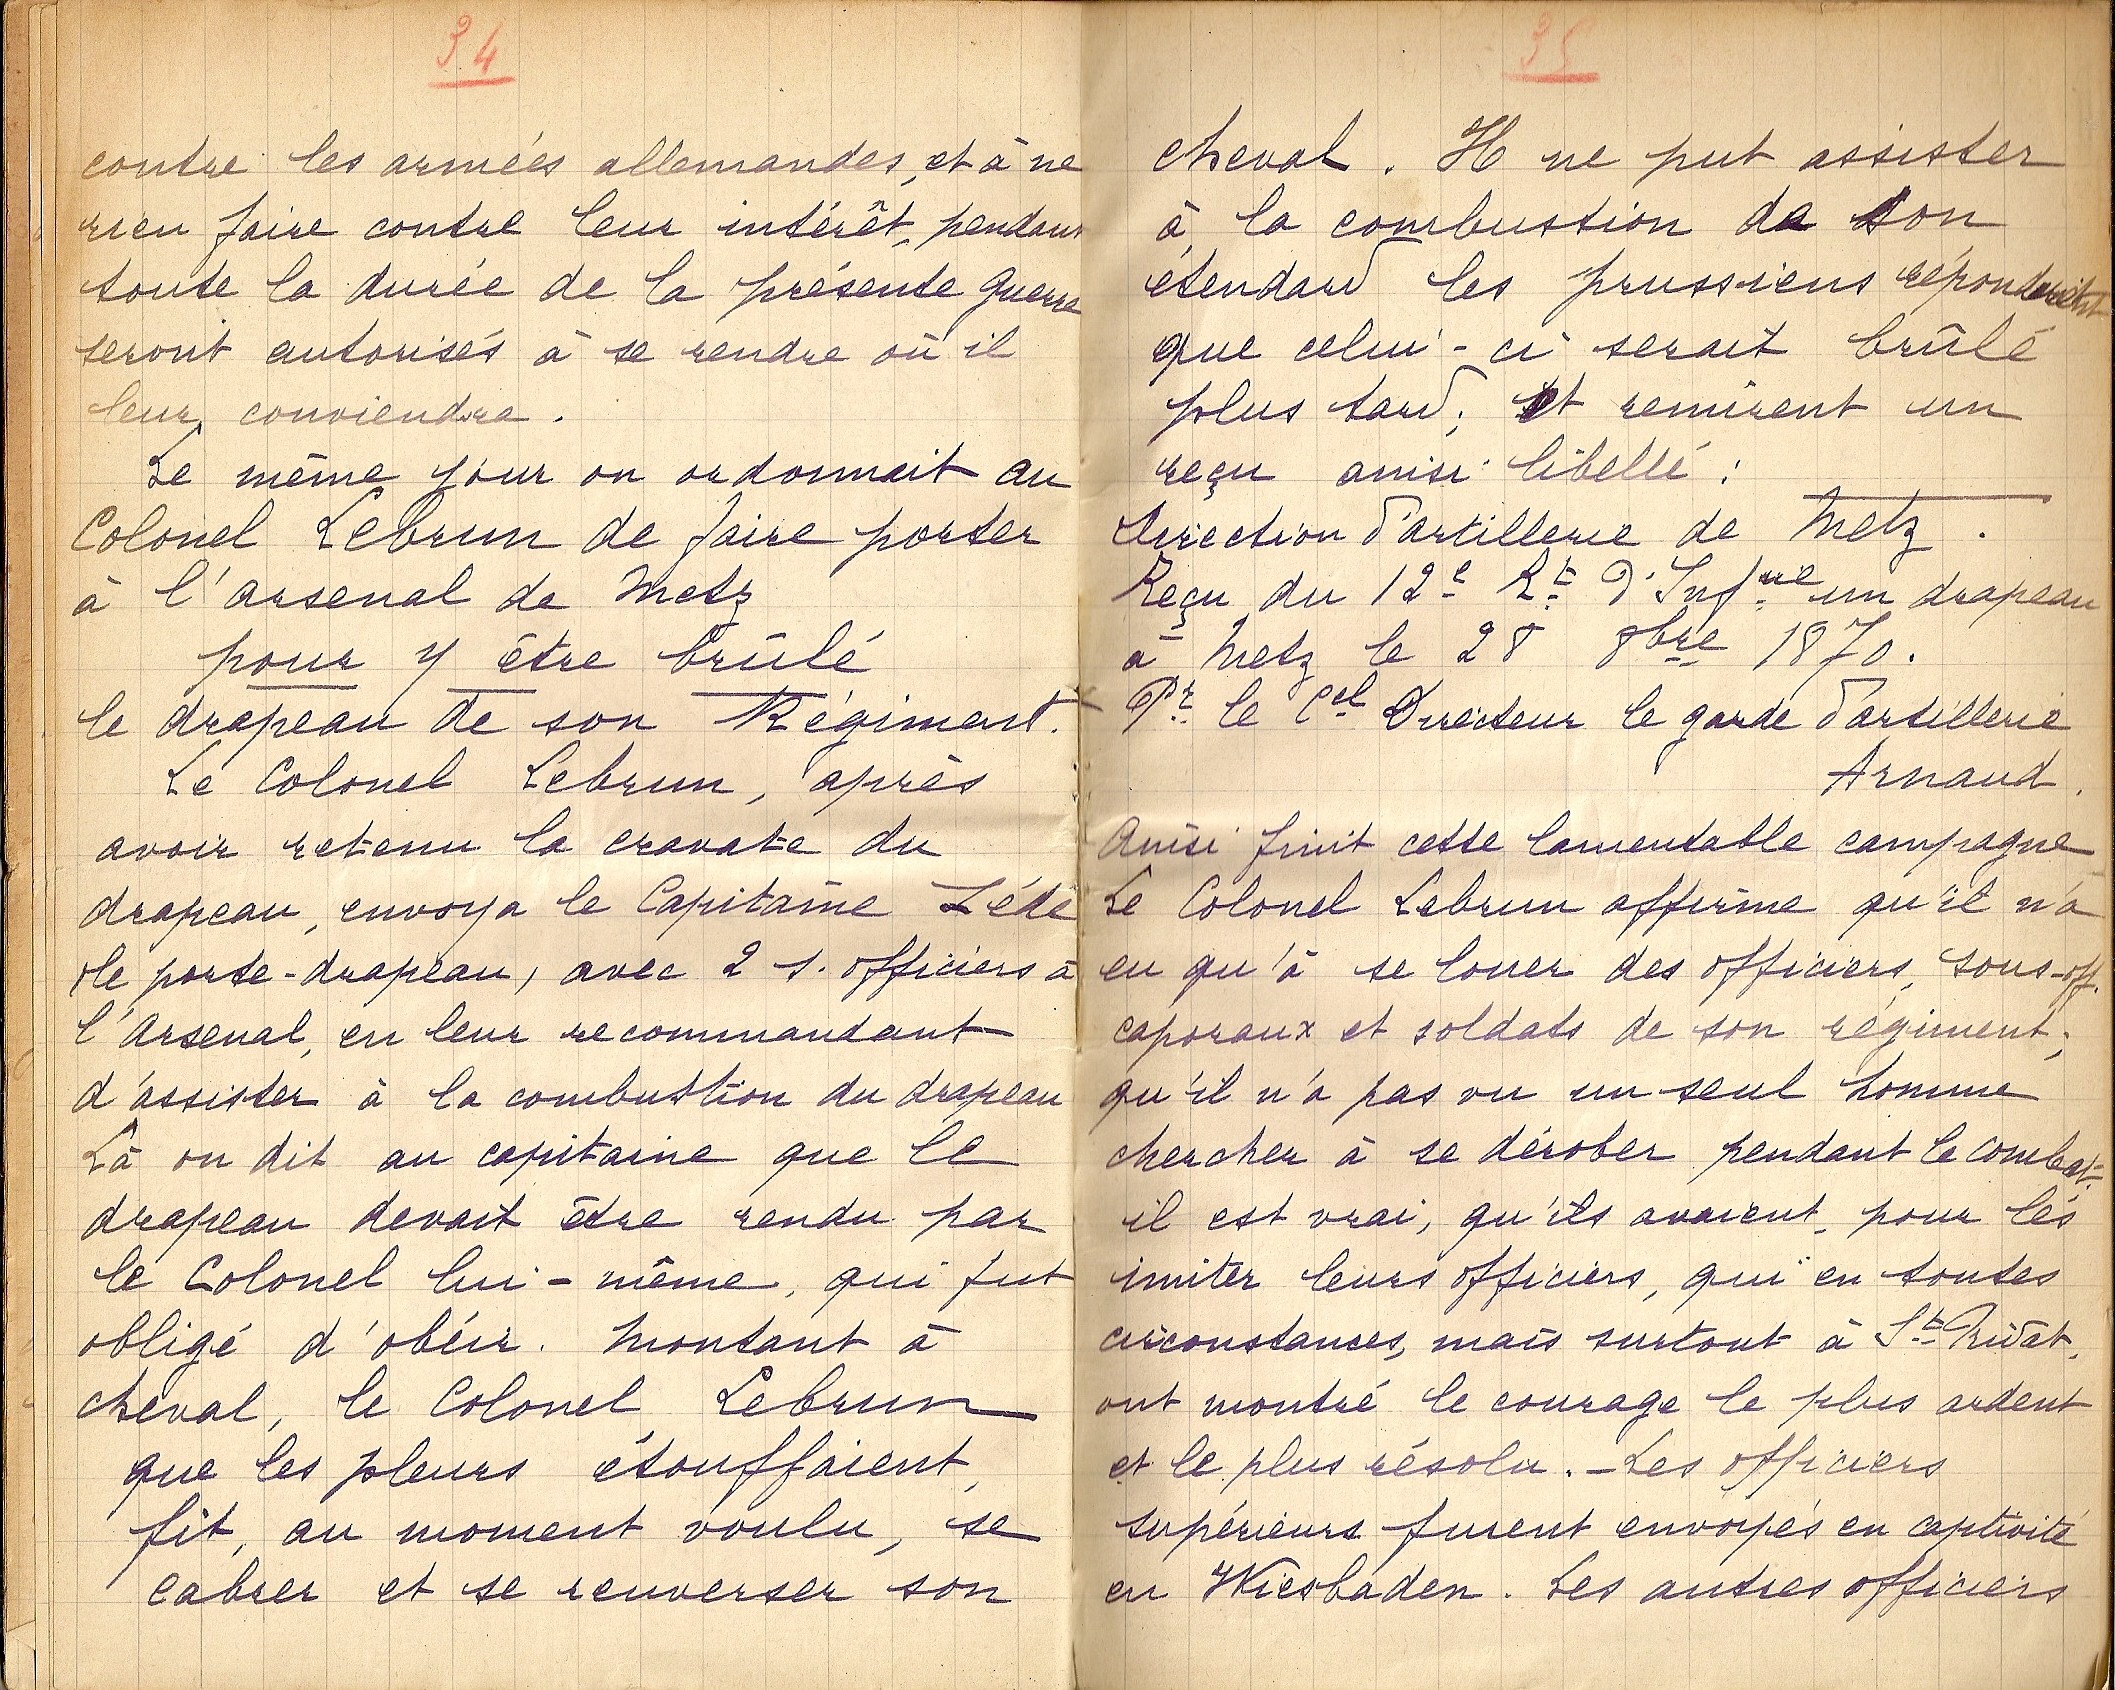 34
contre les armées allemandes, et à ne
rien faire contre leur intérêt, pendant
toute la durée de la présente guerre
seront autorisés à se rendre où il
leur conviendra.
Le même jour on ordonnait au
Colonel Lebrun de faire porter
à l'arsenal de Metz
pour y être brûlé
le drapeau de son Régiment.
Le Colonel Lebrun, après
avoir retenu la cravate du
drapeau, envoya le Capitaine Lédé
le porte-drapeau, avec 2 s. officiers à
l'Arsenal, en leur recommandant
d'assister à la combustion du drapeau
Là on dit au capitaine que le
drapeau devait être rendu par
le Colonel lui-même, qui fut
obligé d'obéir. Montant à
cheval, le Colonel Lebrun
que les pleurs étouffaient,
fit, au moment voulu, se
cabrer et se renverser son
35
cheval. Il ne put assister
à la combustion de son
étendard les prussiens répondirent
que celui-ci serait brûlé
plus tard; et remirent un
reçu ainsi libellé:
Direction d'artillerie de Metz.
Reçu du 12e Rt d'Infrie un drapeau
à Metz le 28 8bre 1870.
Pr le Cel Directeur le garde d'artillerie
Arnaud.
Ainsi finit cette lamentable campagne
Le Colonel Lebrun affirme qu'il n'a
eu qu'à se louer des officiers, sous-off.
caporaux et soldats de son régiment;
qu'il n'a pas vu un seul homme
chercher à se dérober pendant le combat.
il est vrai, qu'ils avaient, pour les
imiter leurs officiers, qui en toutes
circonstances, mais surtout à St Privat,
ont montré le courage le plus ardent
et le plus résolu. - Les officiers
supérieurs furent envoyés en captivité
en Wiesbaden. Les autres officiers